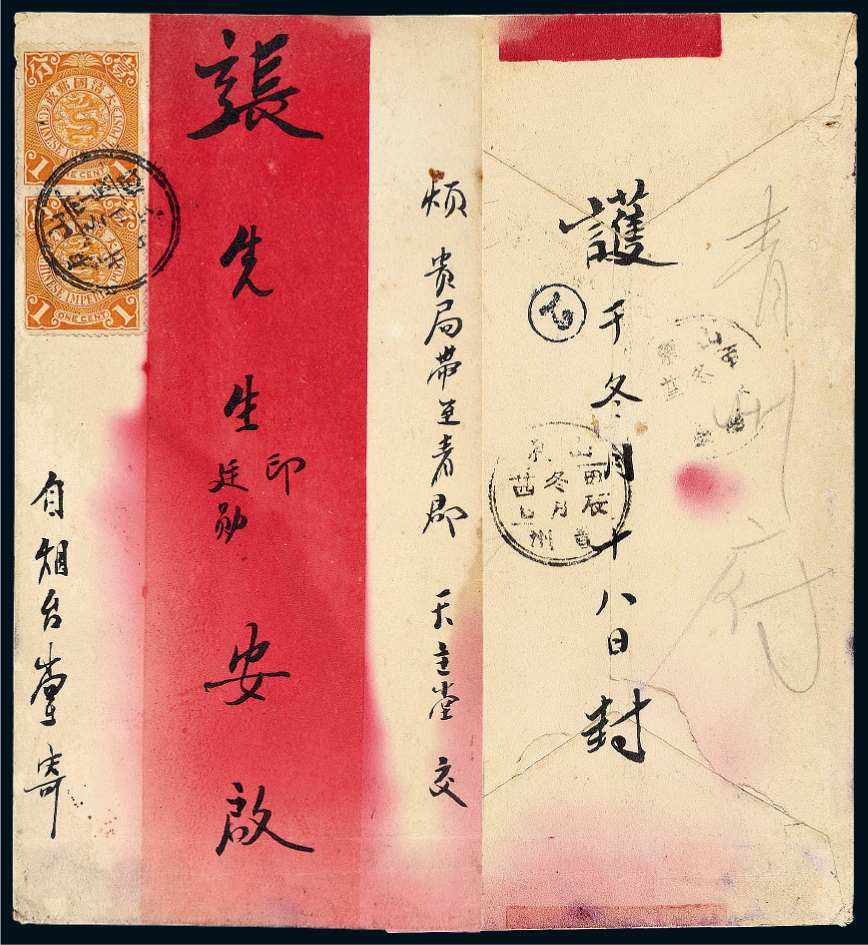 煩 貴局帶至青郡 天主堂 交
張先生 印
廷勛 安啟
自烟台 寄
大清國郵政
CHINESE IMPERIAL POST
1 ONE CENT 1
大清國郵政
CHINESE IMPERIAL POST
1 ONE CENT 1
青州府
護
于冬月十八日封
山東
甲辰
冬月
青州